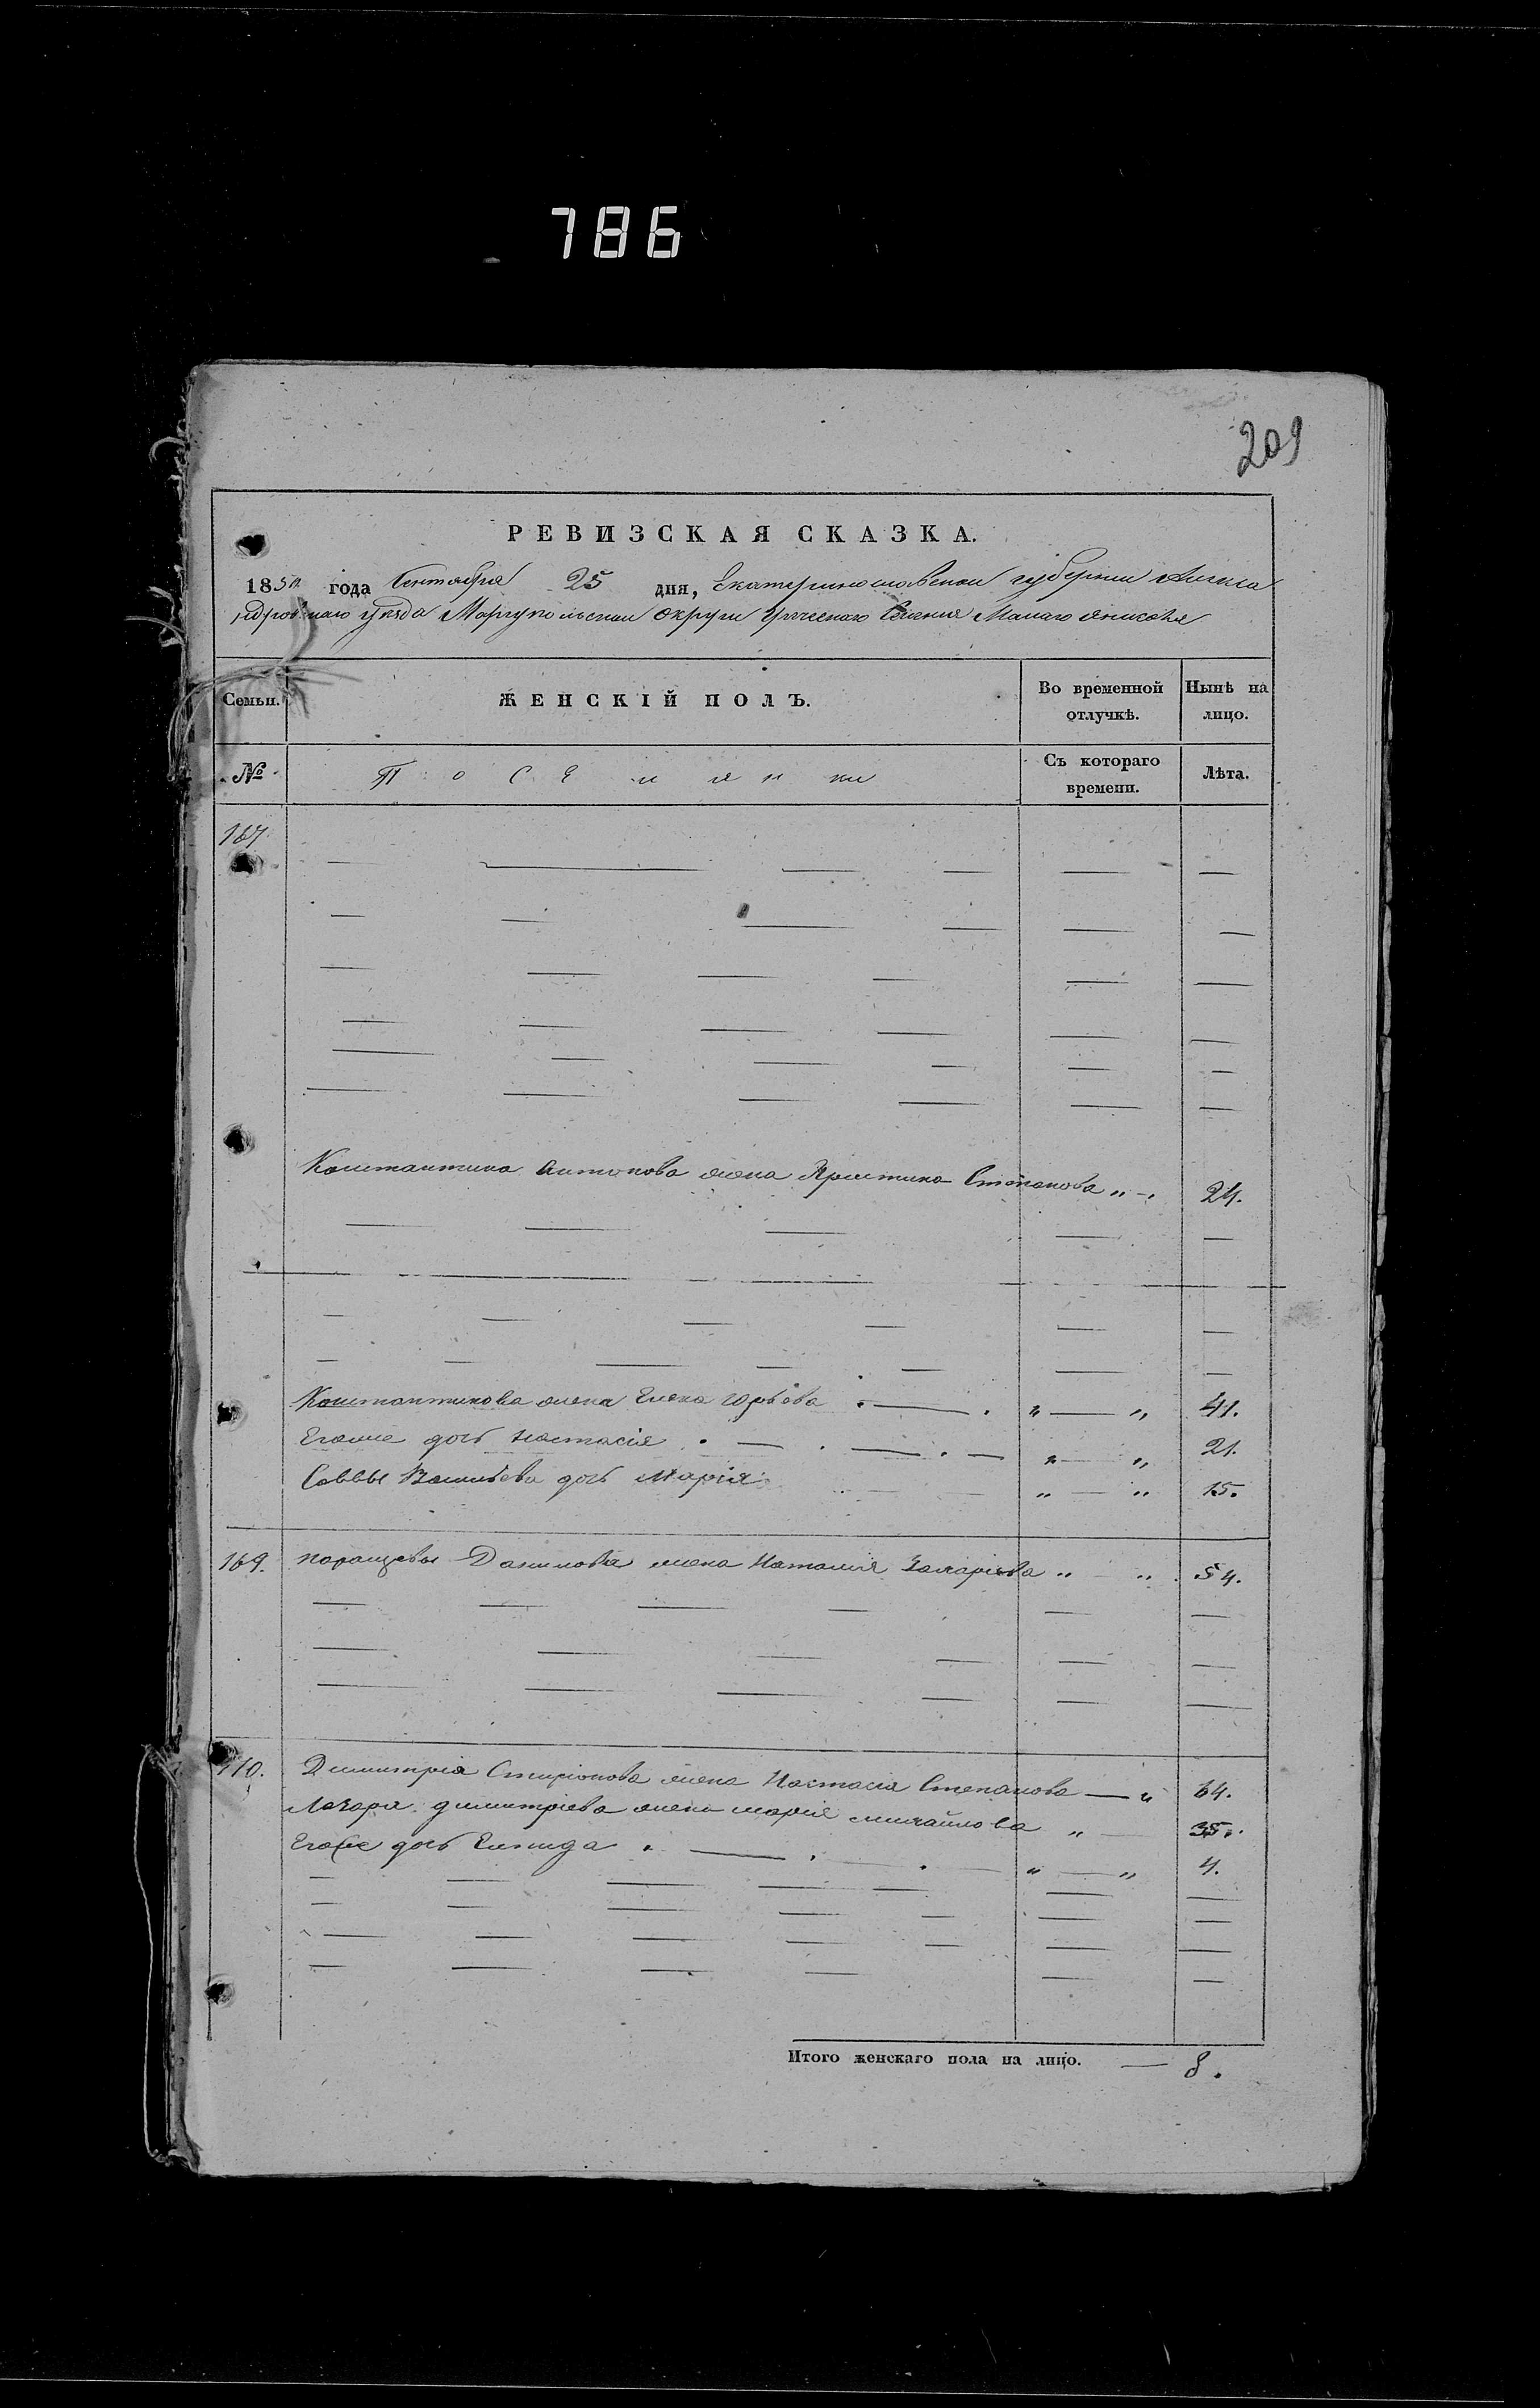 786
209
РЕВИЗСКАЯ СКАЗКА.
1850 года Сентября 25 дня, Екатеринославской губернии Алекса
ндровскаго уѣзда Мариупольскаи округи Греческаго Селения Малаго Янисоля
Семьи. ЖЕНСКІЙ ПОЛЪ. Во временной отлучкѣ. Нынѣ на лицо.
№ Поселянки Съ котораго времени. Лѣта.
167.
Константина Антонова жена Христина Степанова „ - „ 24.
Константинова жена Елена Юрьева „ — „ 41.
Егоже дочь Настасія „ — „ 21.
Саввы Васильева дочь Марія „ — „ 15.
169. Данилова жена Наталия Захаріева „ — „ 54.
170. Димитрія Спиріонова жена Настасіа Степанова — „ 64.
Лазаря Димитріева жена Марія Михайлова „ — 35.
Егоже дочь Елпида „ — „ 4.
Итого женскаго пола на лицо. — 8.